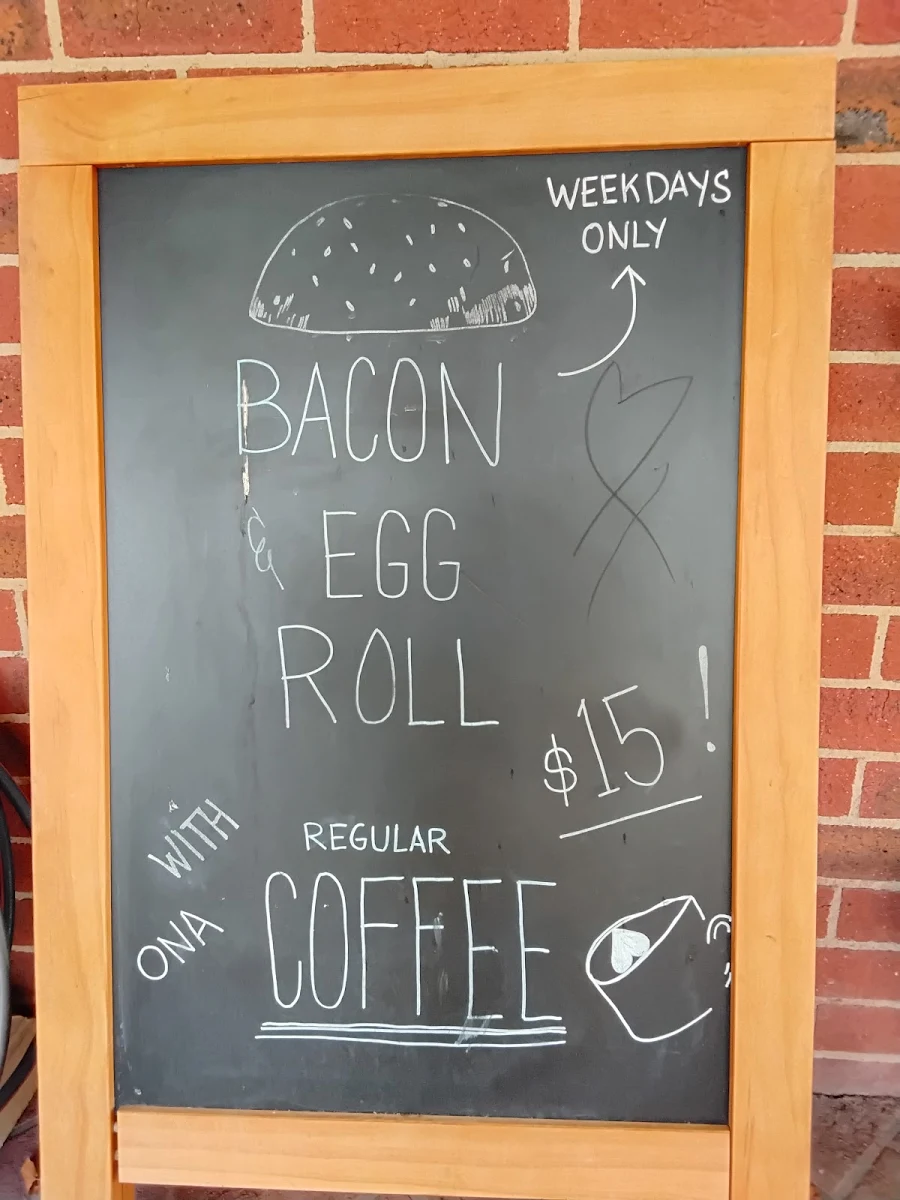 WEEKDAYS
ONLY
BACON
& EGG
ROLL
$15!
WITH
REGULAR
ONA
COFFEE